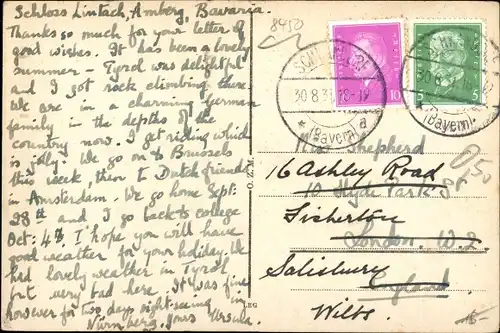 Schloss Lintach, Amberg, Bavaria.
Thanks so much for your letter of
good wishes. It has been a lovely
summer – Tyrol was delightful
and I got rock climbing there.
We are in a charming German
family in the depths of the
country now. I get riding which
is jolly. We go on to Brussels
this week, then to Dutch friends
in Amsterdam. We go home Sept:
28th and I go back to college
Oct: 4th. I hope you will have
good weather for your holiday. We
had lovely weather in Tyrol
but very bad here. It was fine
however for two days sight-seeing in
Nürnberg. Yours Ursula.
8450
30.8.3
18-19
(Bayern) a
10
30.8.3
(Bayern)
5
Miss Shepherd
16 Ashley Road
10 Hyde Park St
Fisherton
London. W.2
Salisbury
England
Wilts.